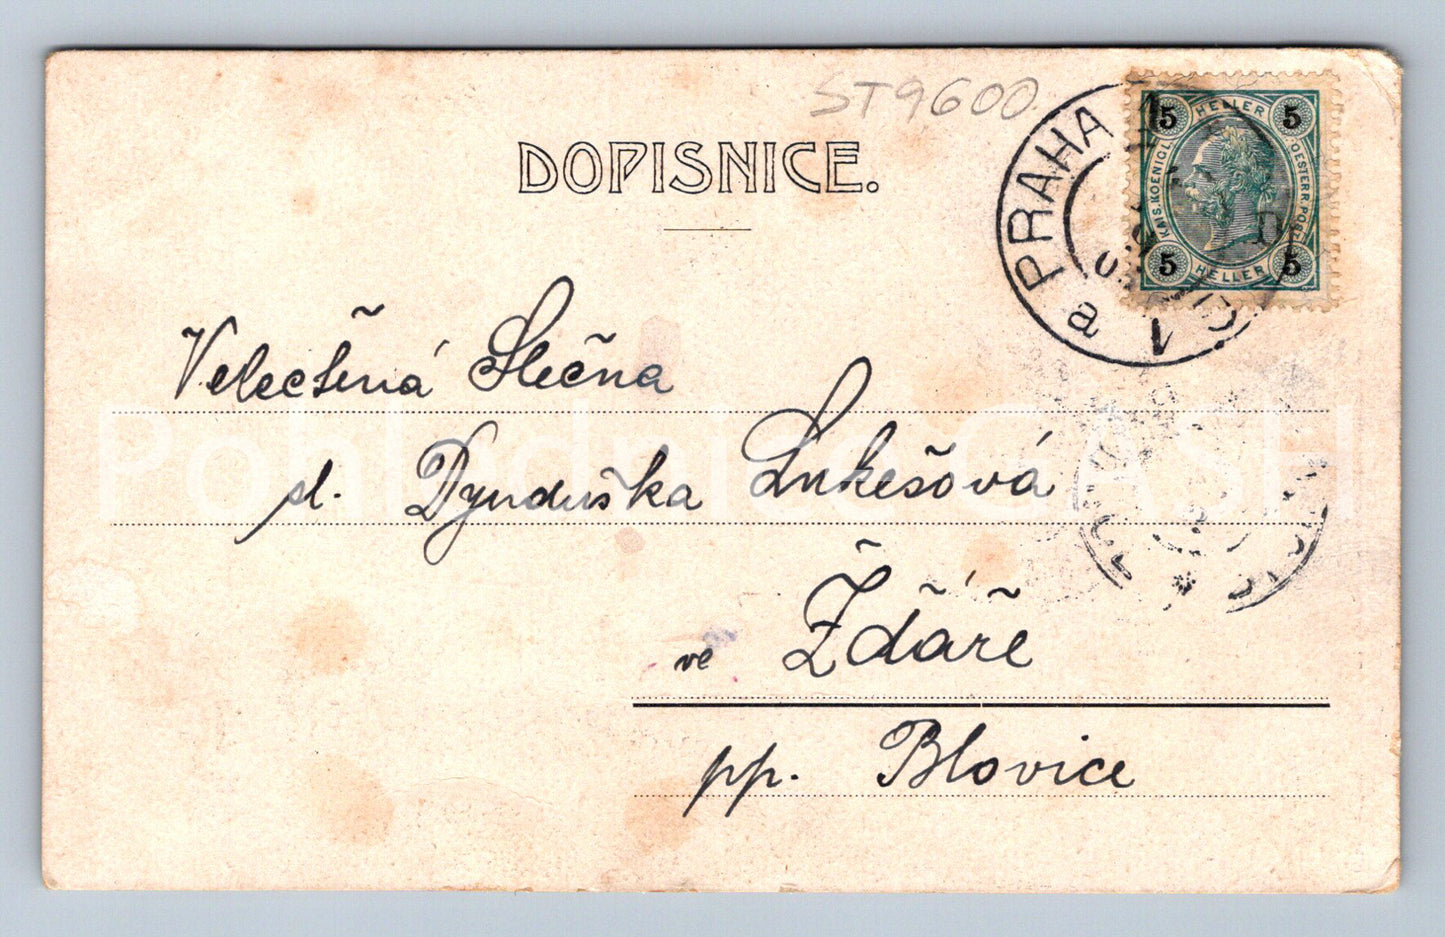 ST9600
DOPISNICE.
PRAHA 1
a
5 HELLER 5
KAIS. KOENIGL. OESTERR. POST
5 HELLER 5
Velectěná Slečna
sl. Dynduška Lukešová
ve Žďáře
pp. Blovice
Pohlednice CASH